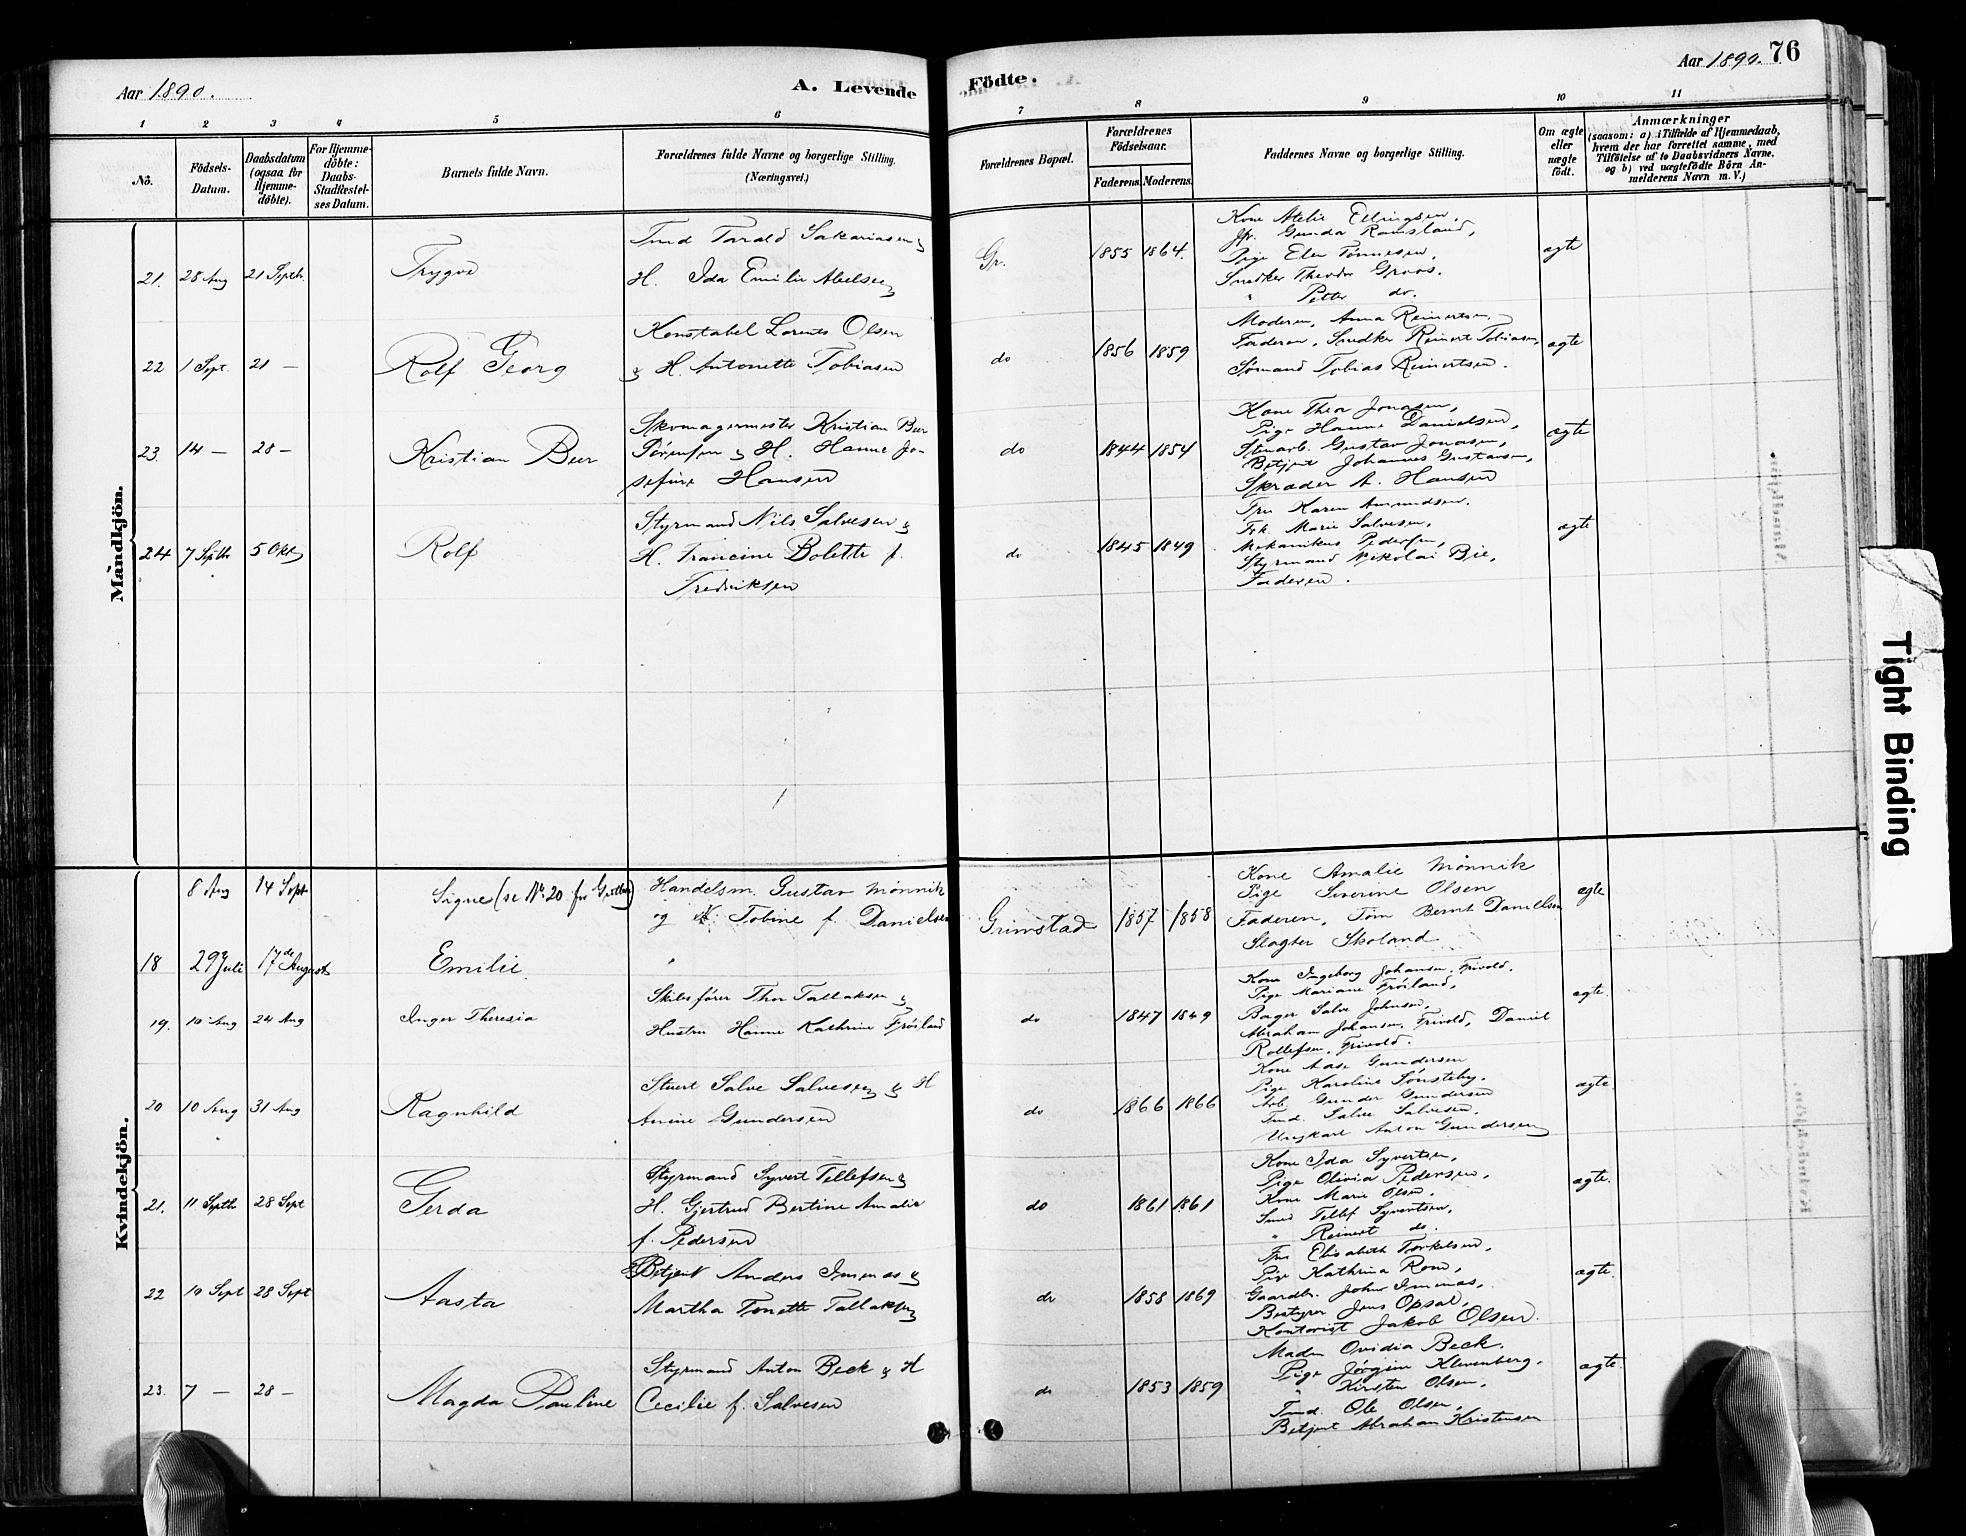 Aar 1890.
A. Levende
Födte.
Aar 1890. 76
1 2 3 4 5 6 7 8 9 10 11
No.
Födsels-Datum.
Daabsdatum (ogsaa for Hjemme-döbte).
For Hjemme-döbte: Daabs-Stadfæstel-ses Datum.
Barnets fulde Navn.
Forældrenes fulde Navne og borgerlige Stilling. (Næringsvei.)
Forældrenes Bopæl.
Forældrenes Födselsaar.
Faderens. Moderens.
Faddernes Navne og borgerlige Stilling.
Om ægte eller uægte födt.
Anmærkninger
(saasom: a) i Tilfælde af Hjemmedaab, hvem der har forrettet samme, med Tilföielse af to Daabsvidners Navne, og b) ved uægtefödte Börn An-melderens Navn m. V.)
Mandkjön.
21. 28 Aug 21 Septb. Trygve
Tmd Tarald Sakariasen &
H. Ida Emilie Abelsen
Gr. 1855 1864.
Kone Atelie Ellingsen,
Jfr. Gunda Ramsland,
Pige Elen Tønnesen,
Snedker Theodor Groos.
" Petter do.
ægte
22 1 Sept. 21 — Rolf Georg
Konstabel Lorents Olsen
& H. Antonette Tobiasen
do 1856 1859
Moderen, Anna Reinertsen,
Faderen, Snedker Reinert Tobiasen,
Sømand Tobias Reinertsen.
ægte
23. 14 — 28 — Kristian Beer
Skomagermester Kristian Beer
Sørensen & H. Hanne Jo-
sefine Hansen
do 1844 1854
Kone Thea Jonasen,
Pige Hanne Danielsen,
Stenarb. Gustav Jonasen,
Betjent Johannes Gustavsen,
Skræder A. Hansen
ægte
24 7 Septb 5 Okt Rolf
Styrmand Nils Salvesen &
H. Francine Bolette f.
Fredriksen
do 1845 1849
Fru Karen Amundsen.
Frk Marie Salvesen,
Mekanikus Pedersen,
Styrmand Nikolai Bie,
Faderen.
ægte
Kvindekjön.
8 Aug 14 Sept Signe (se No. 20 for Gutter)
Handelsm. Gustav Mønnik
og H. Tobine f. Danielsen
Grimstad 1857 1858
Kone Amalie Mønnik
Pige Siverine Olsen
Faderen, Tøm Bernt Danielsen
Slagter Skoland
ægte
18 29 Juli 17de August Emilie "
19. 10 Aug 24 Aug Inger Theresia
Skibsfører Thor Tallaksen &
Hustru Hanne Kathrine Frøiland
do 1847 1849
Kone Ingeborg Johansen, Frivold.
Pige Mariane Frøiland,
Bager Salve Johnsen,
Abraham Johansen, Frivold, Daniel
Rollefsen, Frivold.
ægte.
20 10 Aug 31 Aug Ragnhild
Stuert Salve Salvesen & H
Anine Gundersen
do 1866 1866
Kone Aase Gundersen
Pige Karoline Sønsteby.
Arb. Gunder Gundersen
Tmd. Salve Salvesen.
Ungkarl Anton Gundersen
ægte
21. 11 Septb 28 Sept Gerda
Styrmand Syvert Tellefsen &
H. Gjertrud Bertine Amalie
f. Pedersen
do 1861 1861
Kone Ida Syvertsen,
Pige Olivia Pedersen,
Kone Marie Olsen,
Smed Tellef Syvertsen,
" Reinert do.
ægte.
22 10 Sept 28 Sept Aasta
Betjent Anders Immas &
Martha Tonette Tallaksen
do 1858 1869
Fru Elisabeth Torkelsen,
Pige Kathrina Rom,
Gaardbr. John Immas,
Bestyrer Jens Opsal,
Kontorist Jakob Olsen.
ægte.
23. 7 — 28 — Magda Pauline
Styrmand Anton Beck & H
Cecilie f. Salvesen
do 1853 1859
Madm Ovidia Beck.
Pige Jørgine Klevenberg.
" Kirsten Olsen,
Tmd. Ole Olsen,
Betjent Abraham Kristensen
ægte.
Tight Binding